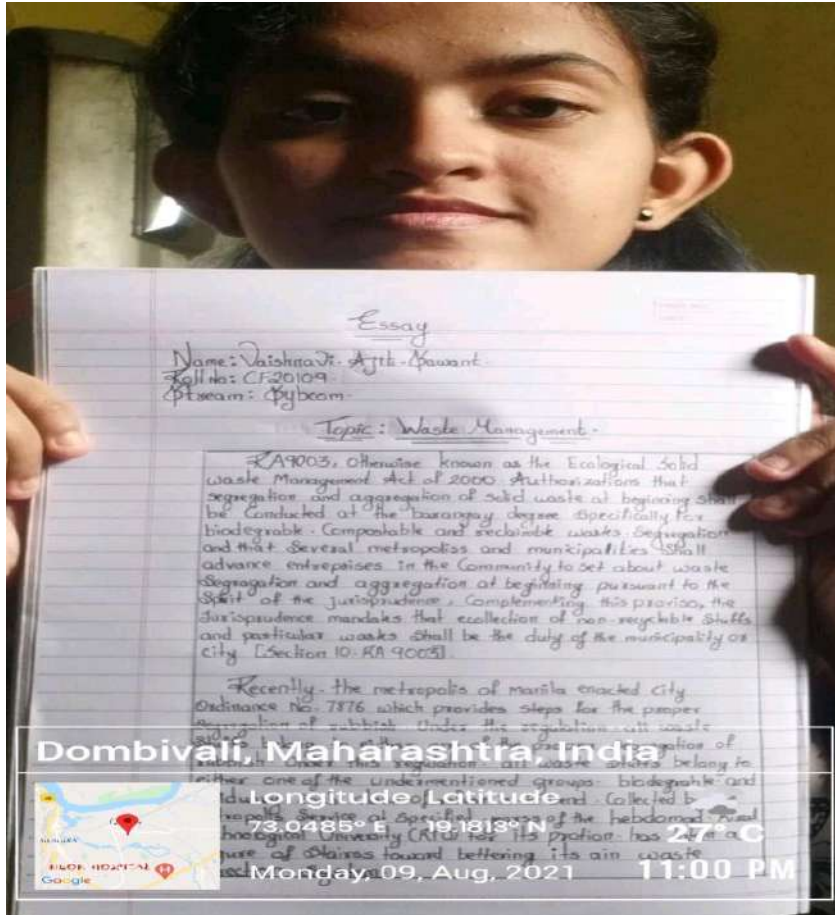 Essay
Name: Vaishnavi. Ajit. Sawant.
Roll no: CF20109.
Stream: Sybcom.
Topic: Waste Management.
RA9003, Otherwise known as the Ecological Solid
waste Management Act of 2000 Authorizations that
segregation and aggregation of solid waste at begining shall
be Conducted at the barangay degree Specifically for
biodegrable. Compostable and reclaimble wastes Segregation
and that Several metropoliss and municipalities Shall
advance entrepaises in the Community to Set about waste
Segragation and aggregation at beginning pursuant to the
Spirit of the jurisprudence. Complementing this proviso, the
Jurisprudence mandates that ecollection of non-recyclable Stuffs
and particular wastes Shall be the duty of the municipality or
city [Section 10. RA 9003].
Recently. the metropolis of Manila enacted City
Ordinance No. 7876 which provides steps for the proper
Segregation of rubbish. Under the regulation. all waste
Dombivali, Maharashtra, India
either one of the undermentioned groups: biodegrable and
Longitude Latitude
Collected b
of the hebdomad. Rural
73.0485° E 19.1813° N
University CRTU for its protion. has
27° C
of Staires toward bettering its ain waste
Monday, 09, Aug, 2021
11:00 PM
HOSPITAL
Google